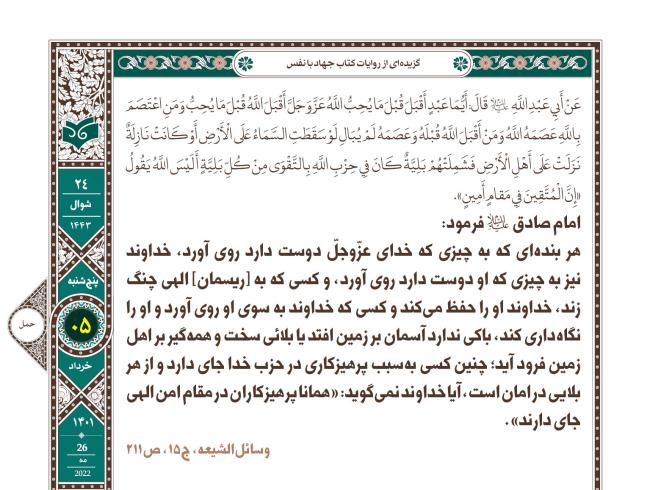 گزیده‌ای از روایات کتاب جهاد با نفس
عَنْ أَبِي عَبْدِ اللَّهِ علیه‌السلام قَالَ: أَيُّمَا عَبْدٍ أَقْبَلَ قُبْلَ مَا يُحِبُّ اللَّهُ عَزَّ وَ جَلَّ أَقْبَلَ اللَّهُ قُبْلَ مَا يُحِبُّ وَ مَنِ اعْتَصَمَ
بِاللَّهِ عَصَمَهُ اللَّهُ وَ مَنْ أَقْبَلَ اللَّهُ قُبْلَهُ وَ عَصَمَهُ لَمْ يُبَالِ لَوْ سَقَطَتِ السَّمَاءُ عَلَى الْأَرْضِ أَوْ كَانَتْ نَازِلَةٌ
نَزَلَتْ عَلَى أَهْلِ الْأَرْضِ فَشَمِلَتْهُمْ بَلِيَّةٌ كَانَ فِي حِزْبِ اللَّهِ بِالتَّقْوَى مِنْ كُلِّ بَلِيَّةٍ أَلَيْسَ اللَّهُ يَقُولُ
«إِنَّ الْمُتَّقِينَ فِي مَقَامٍ أَمِينٍ».
امام صادق علیه‌السلام فرمود:
هر بنده‌ای که به چیزی که خدای عزّوجلّ دوست دارد روی آورد، خداوند
نیز به چیزی که او دوست دارد روی آورد، و کسی که به [ریسمان] الهی چنگ
زند، خداوند او را حفظ می‌کند و کسی که خداوند به سوی او روی آورد و او را
نگاه‌داری کند، باکی ندارد آسمان بر زمین افتد یا بلائی سخت و همه‌گیر بر اهل
زمین فرود آید؛ چنین کسی به‌سبب پرهیزکاری در حزب خدا جای دارد و از هر
بلایی در امان است، آیا خداوند نمی‌گوید: «همانا پرهیزکاران در مقام امن الهی
جای دارند».
وسائل الشیعه، ج۱۵، ص۲۱۱
۲۴
شوال
۱۴۴۳
پنج‌شنبه
۰۵
حمل
خرداد
۱۴۰۱
26
مه
2022